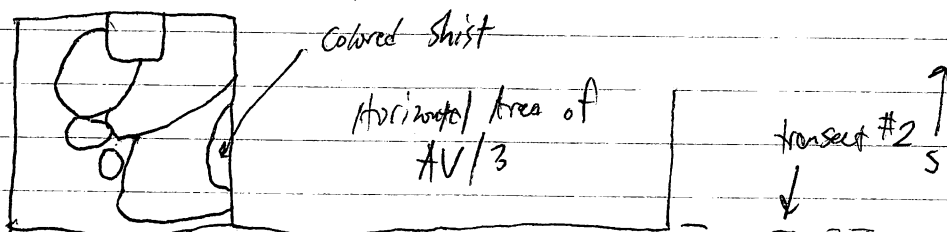 Colored Shist
Horizontal Area of
AV/3
transect #2
S